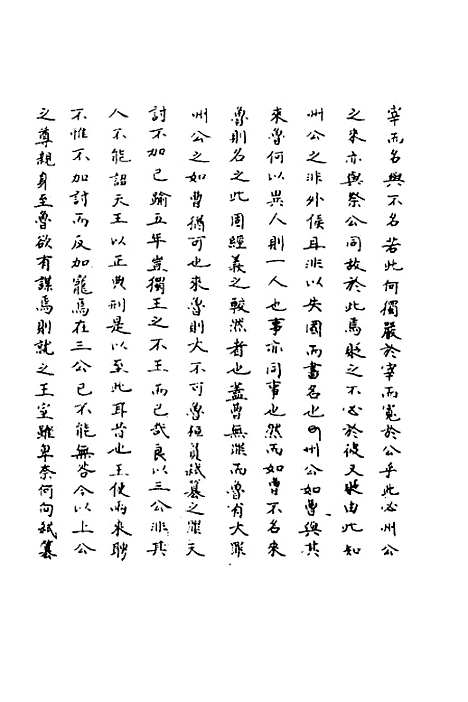 宰而名與不名若此何獨嚴於宰而寬於公乎此必州公
之来亦與祭公同故於此焉貶之不必於彼又貶由此知
州公之非外侯且非以失國而書名也州公如曹與其
來魯何以異人則一人也事亦同事也然而如曹不名來
魯則名之此固經義之較然者也蓋曹無罪而魯有大罪
州公之如曹猶可也來魯則大不可魯桓負弑篡之罪天
討不加已踰五年豈獨王之不王而已哉良以三公非其
人不能詔天王以正典刑是以至此耳昔也王使雨來聘
不惟不加討而反加寵焉在三公已不能無咎今以上公
之尊親身至魯欲有謀焉則就之王室雖卑奈何向弑篡